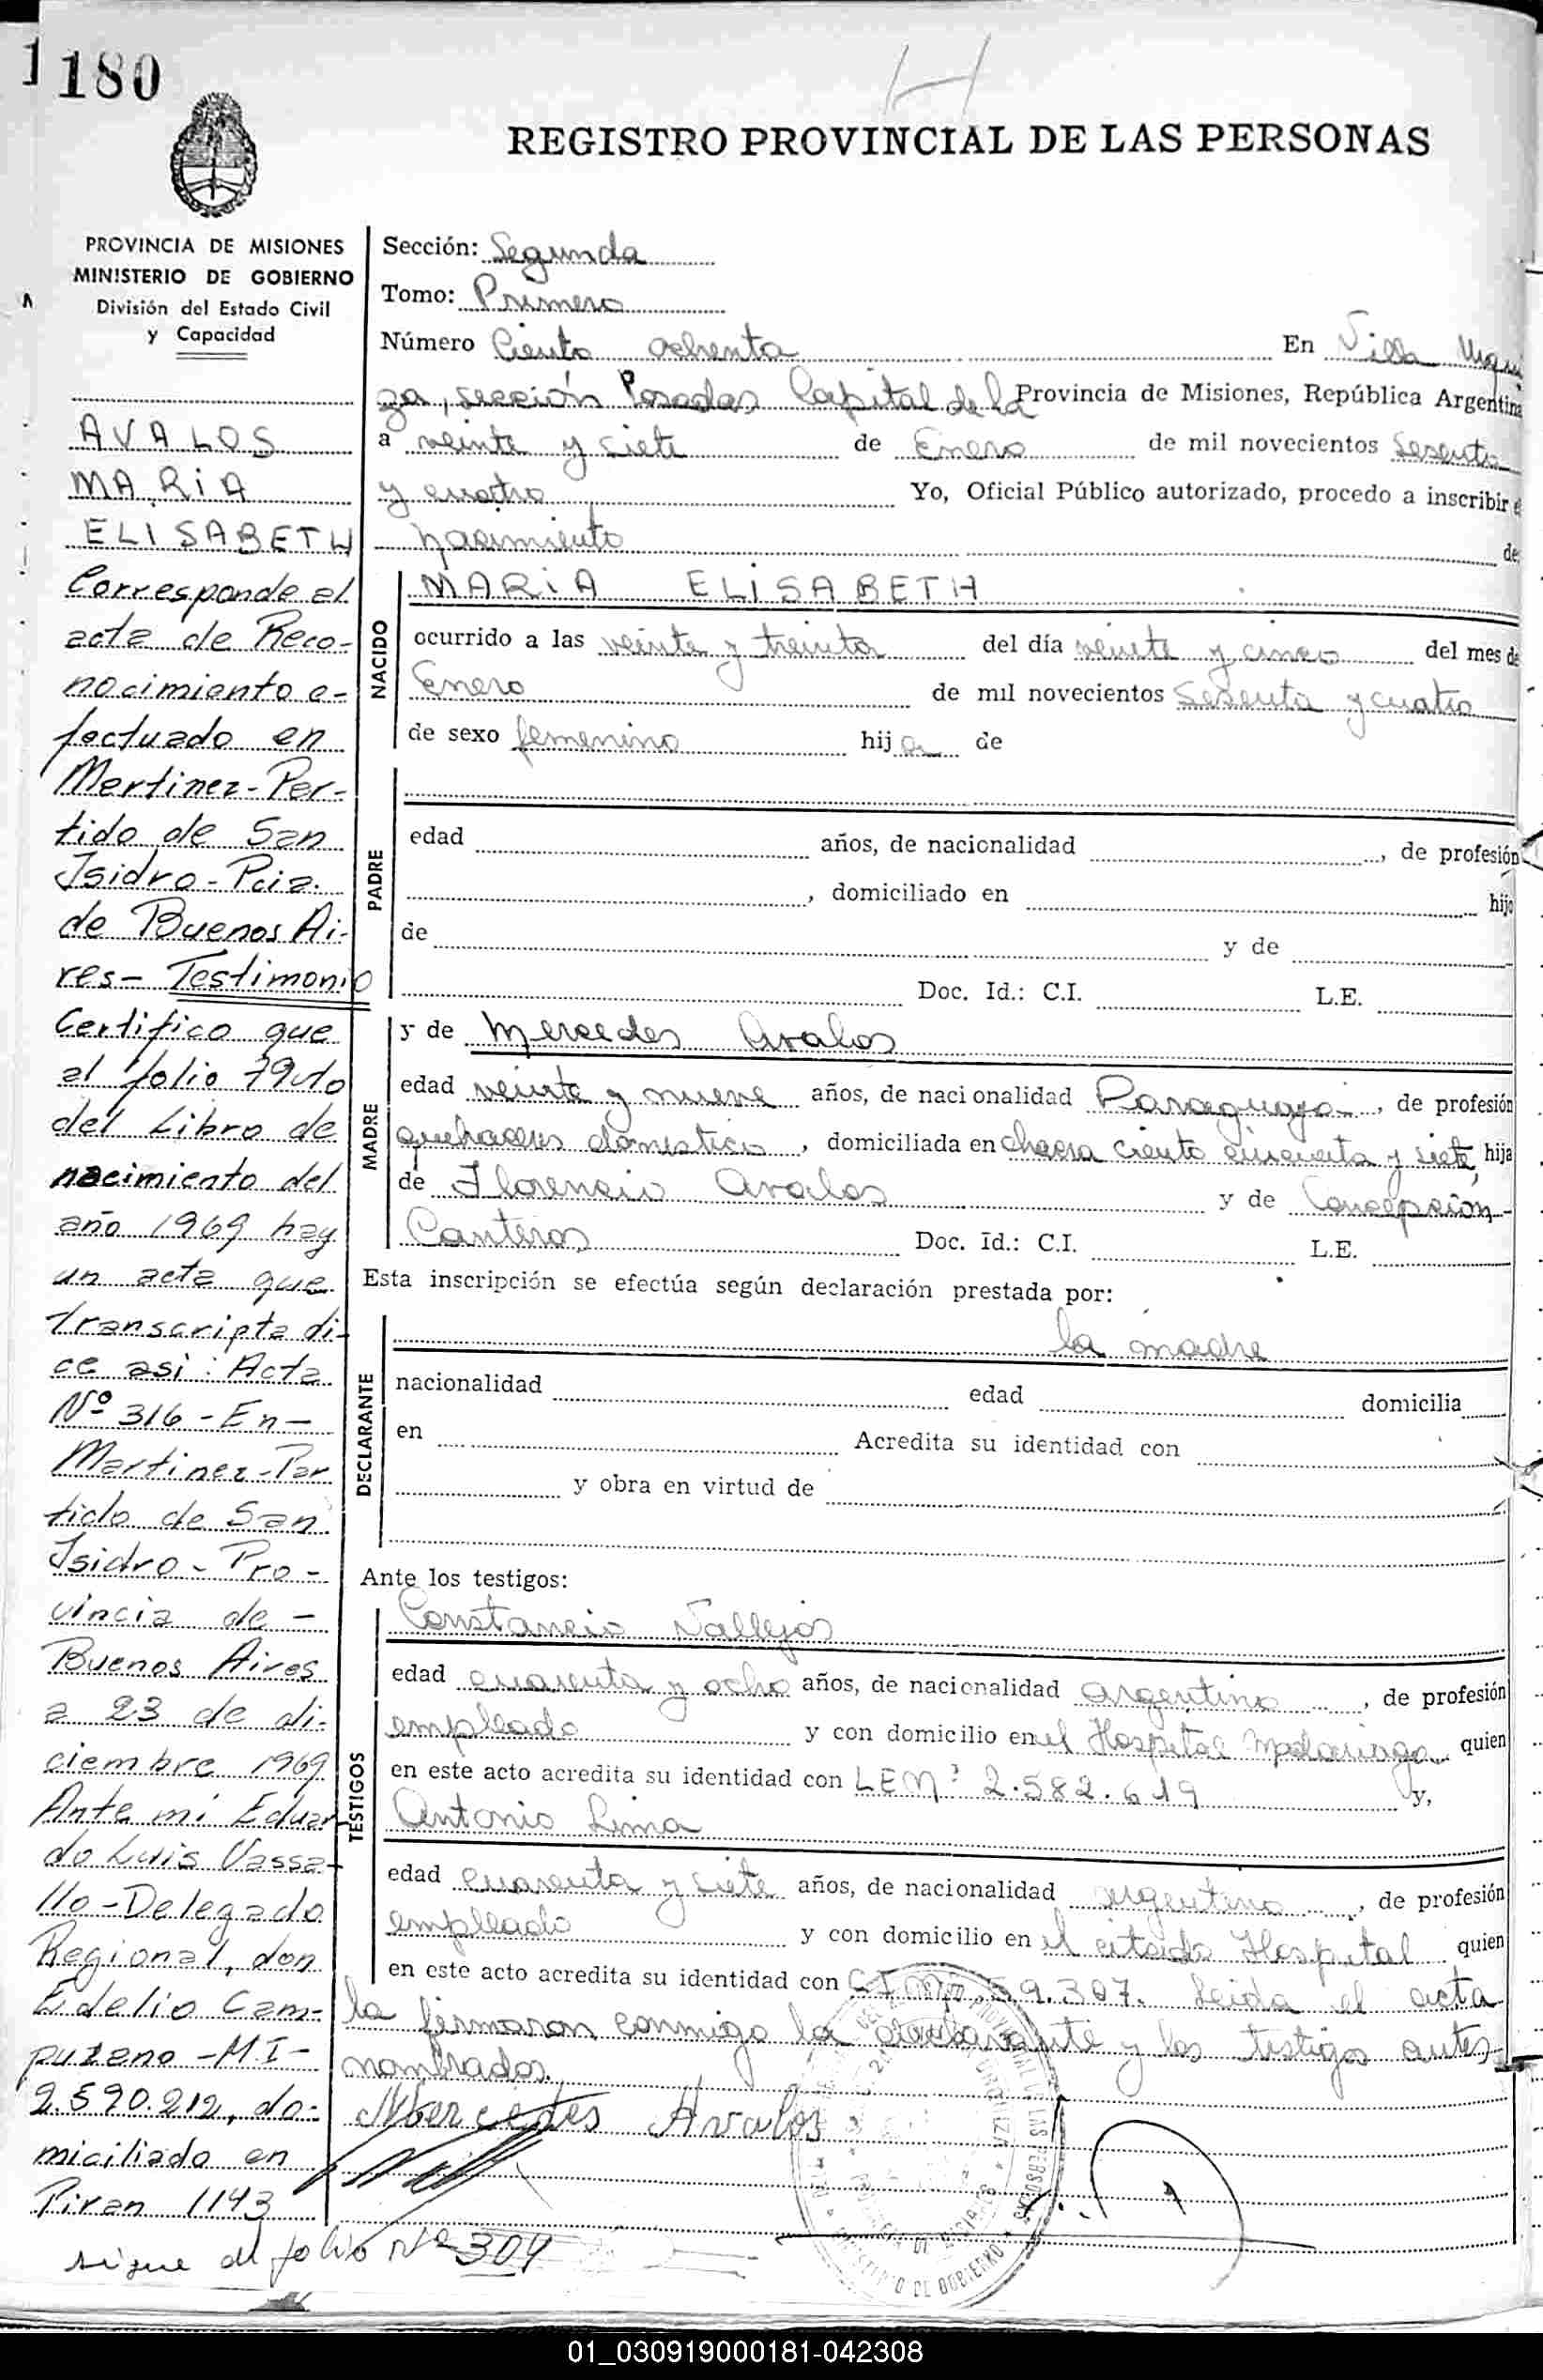 180
REGISTRO PROVINCIAL DE LAS PERSONAS
PROVINCIA DE MISIONES
MINISTERIO DE GOBIERNO
División del Estado Civil
y Capacidad
AVALOS
MARIA
ELISABETH
Corresponde al
acta de Reco-
nocimiento e-
fectuado en
Martinez-Par-
tido de San
Isidro-Pcia.
de Buenos Ai-
res- Testimonio
Certifico que
al folio 79vto
del Libro de
nacimiento del
año 1969 hay
un acta que
transcripta di-
ce asi: Acta
Nº 316-En-
Martinez-Par
tido de San
Isidro-Pro-
vincia de-
Buenos Aires
a 23 de di-
ciembre 1969
Ante mi Eduar-
do Luis Vassa-
llo-Delegado
Regional, don
Edelio Cam-
puzano-M.I-
2.590.212, do-
miciliado en
Piran 1143
sigue al folio Nº 304
Sección: Segunda
Tomo: Primero
Número Ciento ochenta En Villa Urqui
za, sección Posadas Capital de la Provincia de Misiones, República Argentina
a veinte y siete de Enero de mil novecientos Sesenta
y cuatro Yo, Oficial Público autorizado, procedo a inscribir el
nacimiento de
NACIDO
MARIA ELISABETH
ocurrido a las veinte y treinta del día veinte y cinco del mes de
Enero de mil novecientos Sesenta y cuatro
de sexo femenino hija de
PADRE
edad años, de nacionalidad , de profesión
, domiciliado en hijo
de y de
Doc. Id.: C.I. L.E.
MADRE
y de Mercedes Avalos
edad veinte y nueve años, de nacionalidad Paraguaya , de profesión
quehaceres domestico , domiciliada en chacra ciento cincuenta y siete, hija
de Florencio Avalos y de Concepción-
Canteros Doc. Id.: C.I. L.E.
Esta inscripción se efectúa según declaración prestada por:
DECLARANTE
la madre
nacionalidad edad domicilia
en Acredita su identidad con
y obra en virtud de
Ante los testigos:
TESTIGOS
Constancio Vallejos
edad cuarenta y ocho años, de nacionalidad argentino , de profesión
empleado y con domicilio en el Hospital Madariaga quien
en este acto acredita su identidad con LE Nº 2.582.619 y,
Antonio Lima
edad cuarenta y siete años, de nacionalidad argentino , de profesión
empleado y con domicilio en el citado Hospital quien
en este acto acredita su identidad con C I Nº 59.307. Leida el acta
la firmaron conmigo la declarante y los testigos antes
nombrados.
Mercedes Avalos
01_030919000181-042308